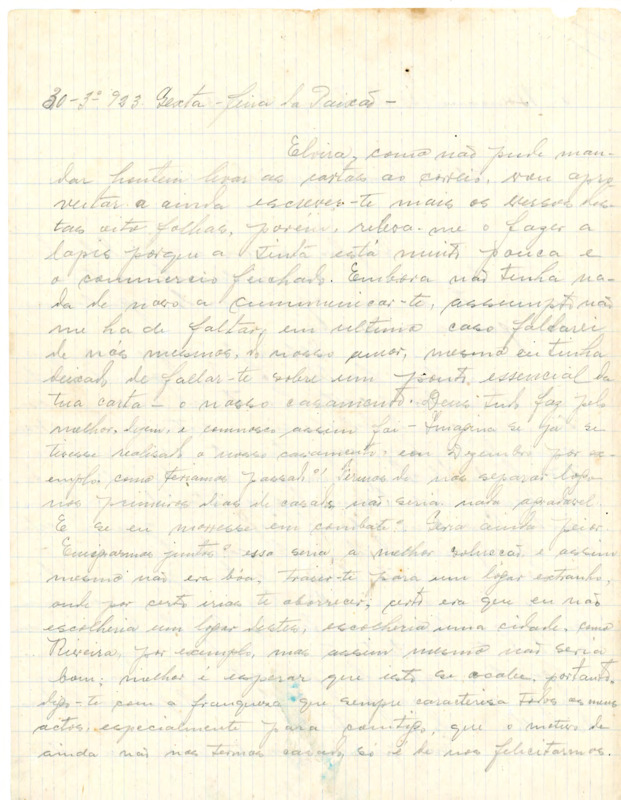 30-3º 923. Sexta-feira da Paixão-
Elvira, como não pude man-
dar hontem levar as cartas ao correio, vou apro
veitar a ainda escrever-te mais os versos des-
tas oito folhas, porém, releva-me o fazer a
lapis porque a tinta está muito pouca e
o commercio fechado. Embora não tenha na-
da de novo a cummunicar-te, assumpto não
me ha de faltar, em ultimo caso fallarei
de nós mesmos, do nosso amor, mesmo eu tinha
deixado de fallar-te sobre um ponto essencial da
tua carta - o nosso casamento. Deus tudo faz pelo
melhor, e comnosco assim foi - Imagina se já se
tivesse realisado o nosso casamento, em Dezembro por ex-
emplo, como teriamos passado? Termos de nos separar logo
nos primeiros dias de casados não seria nada agradavel.
E se eu morresse em combate? Seria ainda peior.
Emigrarmos juntos? essa seria a melhor solucção e assim
mesmo não era bôa, trazer-te para um logar extranho,
onde por certo irias te aborrecer, certo era que eu não
escolheria um logar destes, escolheria uma cidade, como
Riveira, por exemplo, mas assim mesmo não seria
bom; melhor é esperar que isto se acabe, portanto,
digo-te com a franqueza que sempre caracterisa todos os meus
actos, especialmente para comtigo, que o motivo de
ainda não nos termos casado, só é de nos felicitarmos.